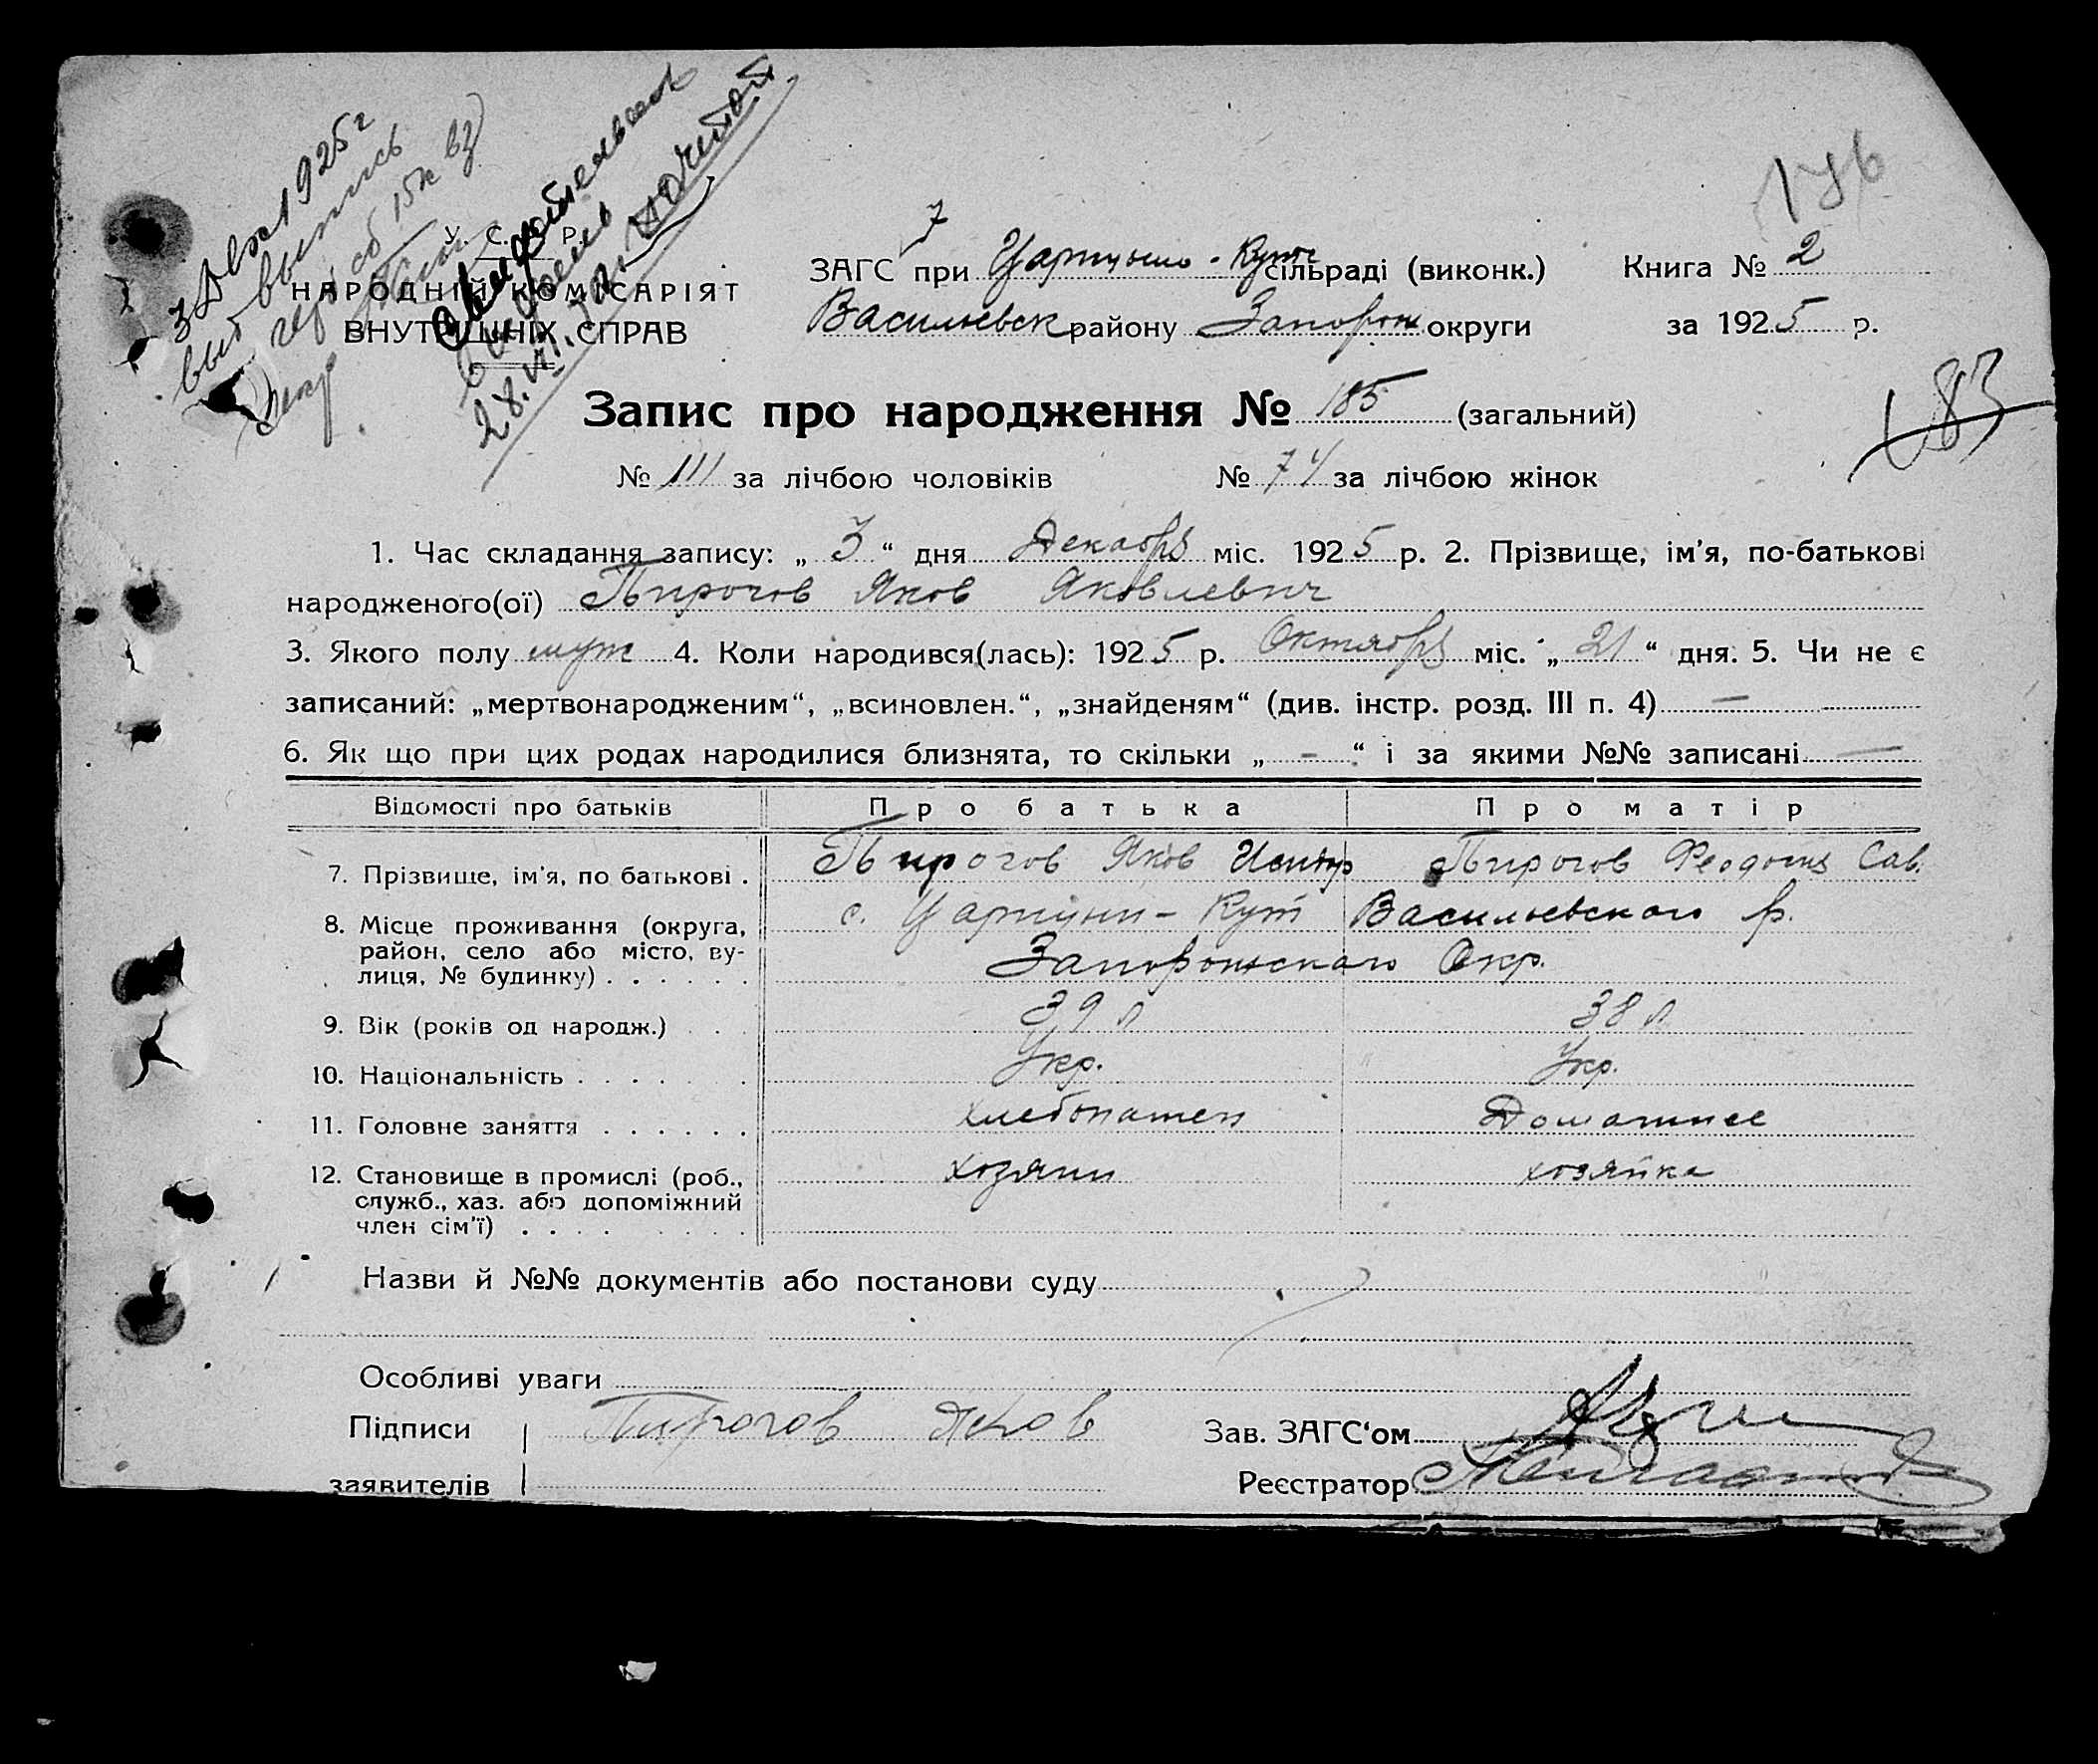 3 Дек 1925 г
выд выпись
Свидетельство
28.VI.72г. почтой
176
У. С. Р. Р.
НАРОДНІЙ КОМІСАРІЯТ
ВНУТРІШНІХ СПРАВ
7
ЗАГС при Царицыно-Кутс сільраді (виконк.) Книга № 2
Васильевск району Запорож округи за 1925 р.
183
Запис про народження № 185 (загальний)
№ 111 за лічбою чоловіків № 74 за лічбою жінок
1. Час складання запису: „ 3 “ дня Декабря міс. 1925 р. 2. Прізвище, ім'я, по-батькові
народженого(ої) Пирогов Яков Яковлевич
3. Якого полу муж 4. Коли народився(лась): 1925 р. Октября міс. „ 21 “ дня. 5. Чи не є
записаний: „мертвонародженим“, „всиновлен.“, „знайденям“ (див. інстр. розд. III п. 4) —
6. Як що при цих родах народилися близнята, то скільки „ - “ і за якими №№ записані —
Відомості про батьків Про батька Про матір
7. Прізвище, ім'я, по батькові . Пирогов Яков Пирогов Феодосия Сав.
8. Місце проживання (округа, с. Царицын-Кут Васильевского р.
район, село або місто, ву-
лиця, № будинку) . . . . . . Запорожского Окр.
9. Вік (років од народж.) . . . 39 л 38 л
10. Національність . . . . . . Укр. Укр.
11. Головне заняття . . . . . . хлебопашец Домашнее
12. Становище в промислі (роб., хозяин хозяйка
служб., хаз. або допоміжний
член сім'ї) . . . . . . . .
Назви й №№ документів або постанови суду
Особливі уваги
Підписи Пирогов Яков Зав. ЗАГС'ом
заявителів Реєстратор